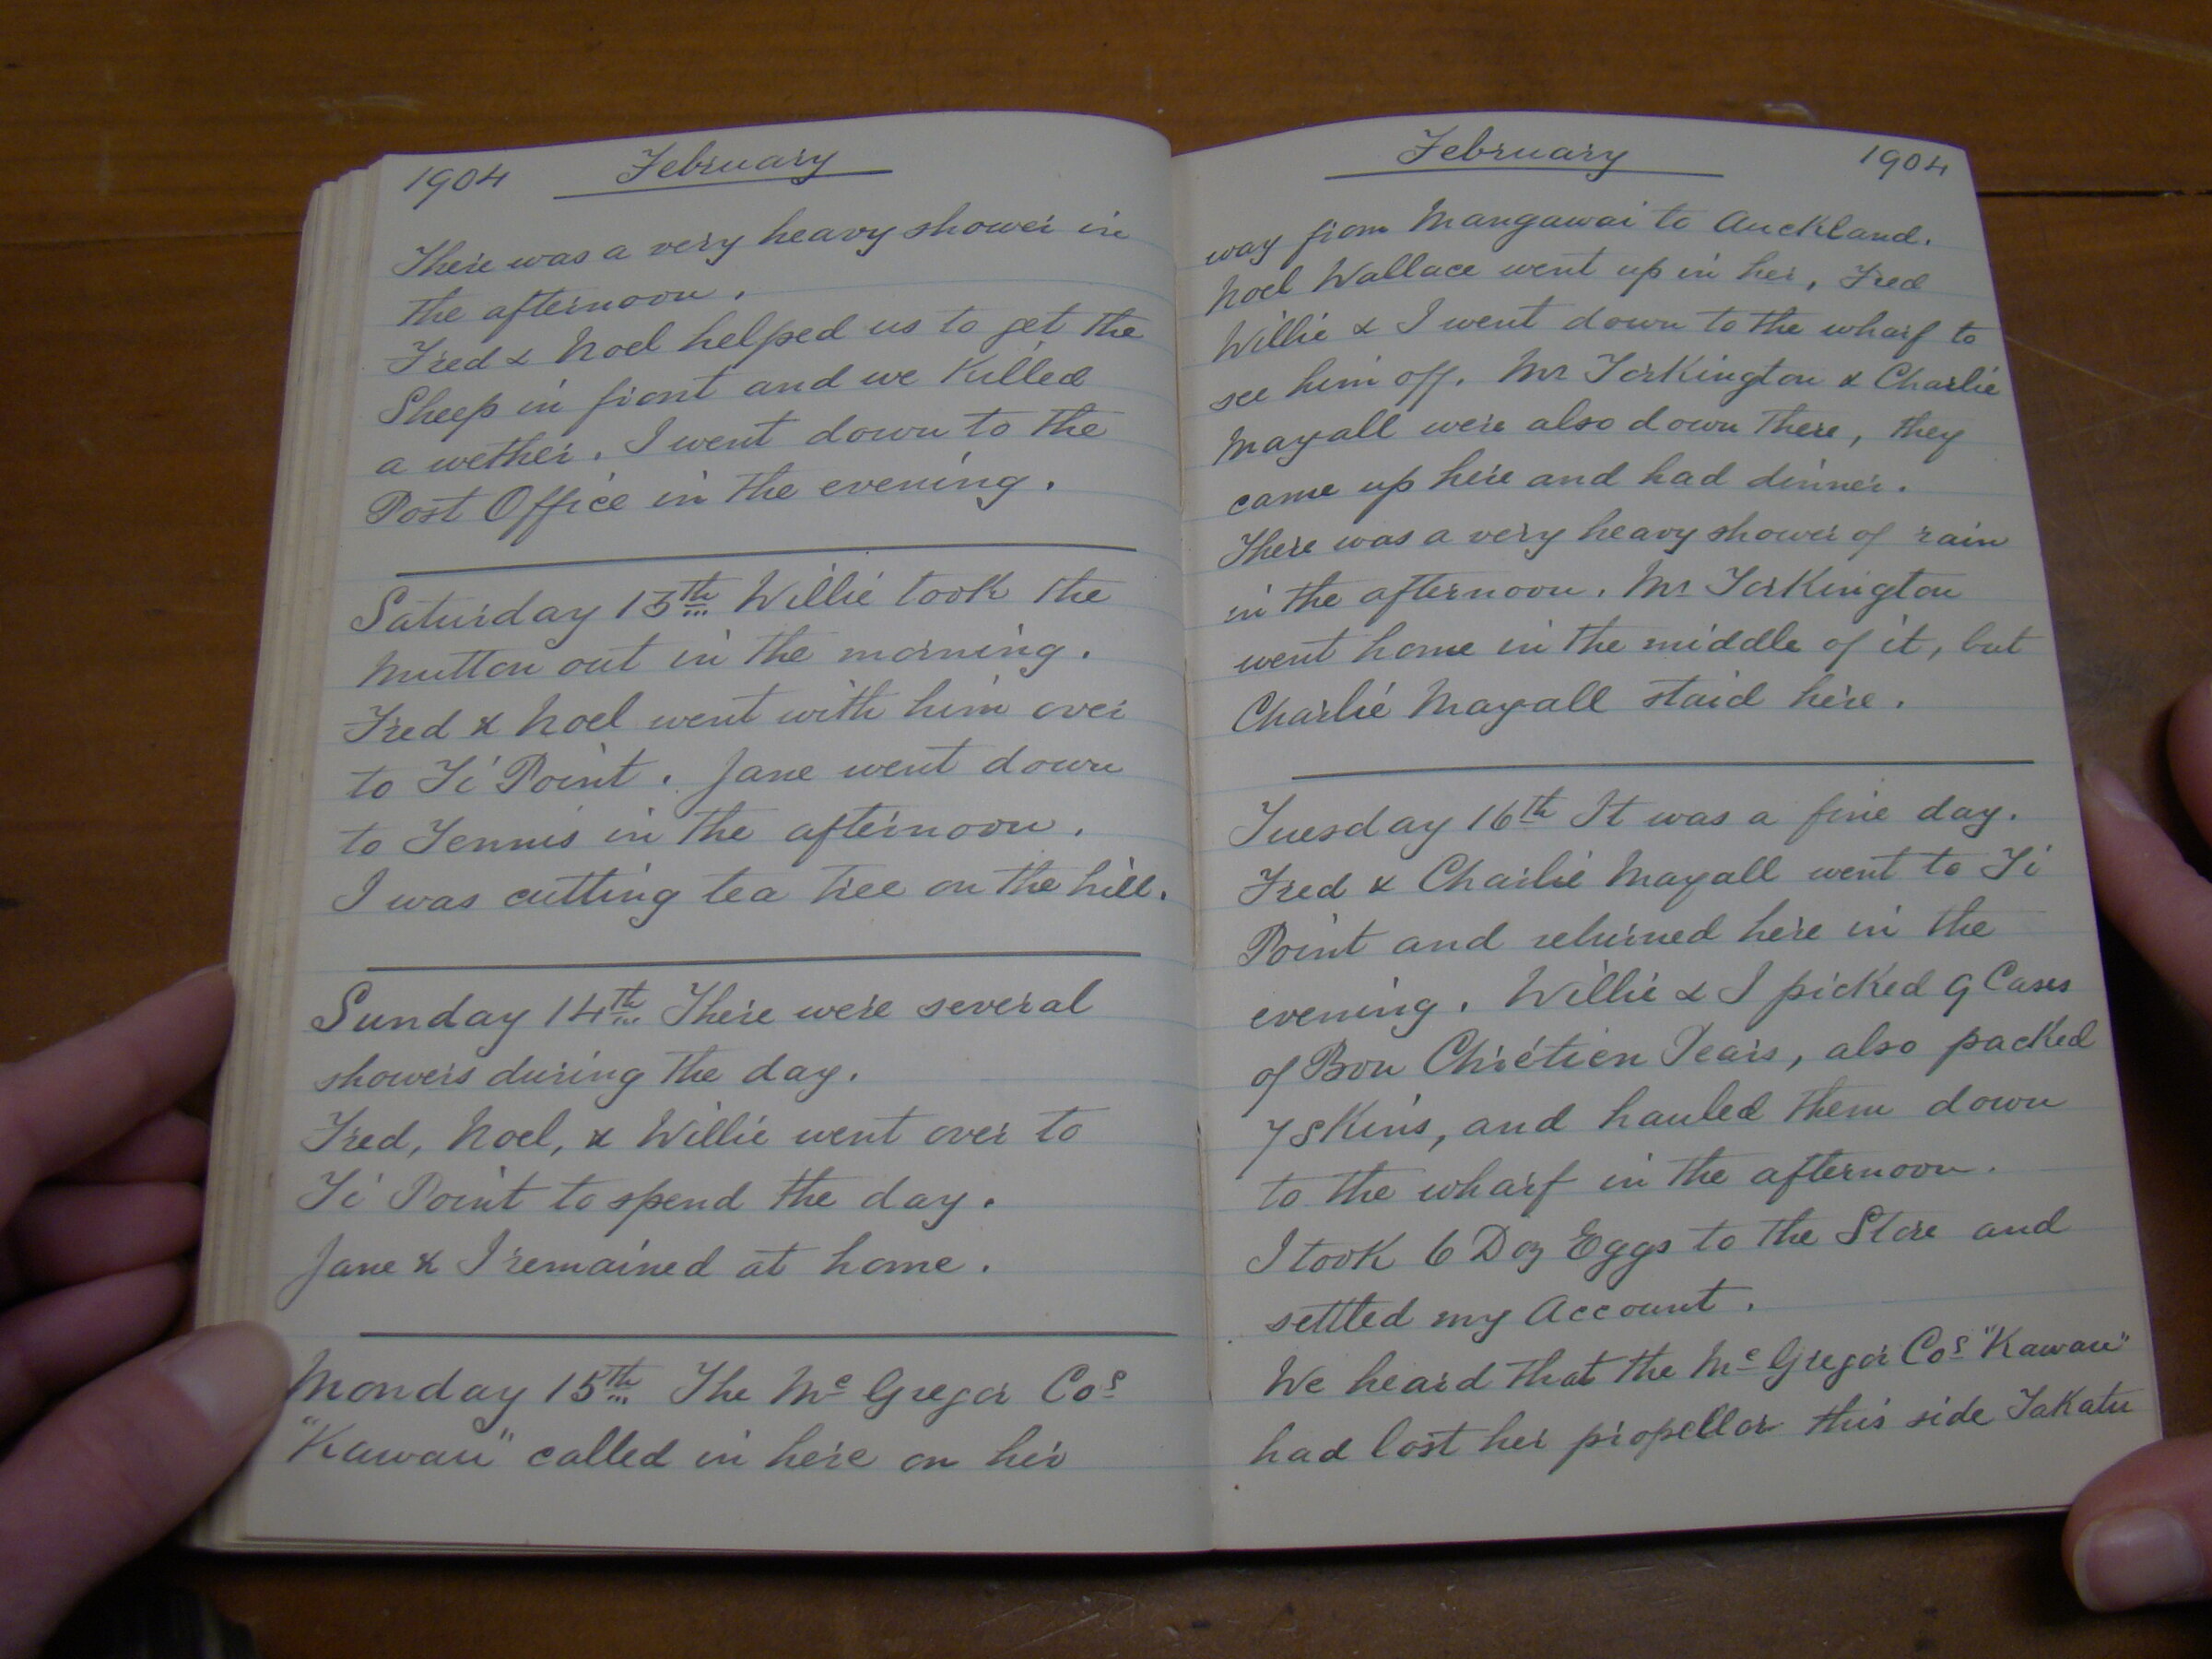 1904 February
There was a very heavy shower in
the afternoon.
Fred & Noel helped us to get the
Sheep in front and we killed
a wether. I went down to the
Post Office in the evening.
Saturday 13th Willie took the
Mutton out in the morning.
Fred & Noel went with him over
to Ti Point. Jane went down
to Tennis in the afternoon.
I was cutting tea tree on the hill.
Sunday 14th There were several
showers during the day.
Fred, Noel, & Willie went over to
Ti Point to spend the day.
Jane & I remained at home.
Monday 15th The McGregor Cos
"Kawau" called in here on her
February 1904
way from Mangawai to Auckland.
Noel Wallace went up in her, Fred
Willie & I went down to the wharf to
see him off. Mr Torkington & Charlie
Mayall were also down there, they
came up here and had dinner.
There was a very heavy shower of rain
in the afternoon. Mr Torkington
went home in the middle of it, but
Charlie Mayall staid here.
Tuesday 16th It was a fine day.
Fred & Charlie Mayall went to Ti
Point and returned here in the
evening. Willie & I picked 9 Cases
of Bon Chrétien Pears, also packed
7 skins, and hauled them down
to the wharf in the afternoon.
I took 6 Doz Eggs to the Store and
settled my Account.
We heard that the McGregor Cos "Kawau"
had lost her propellor this side Takatu